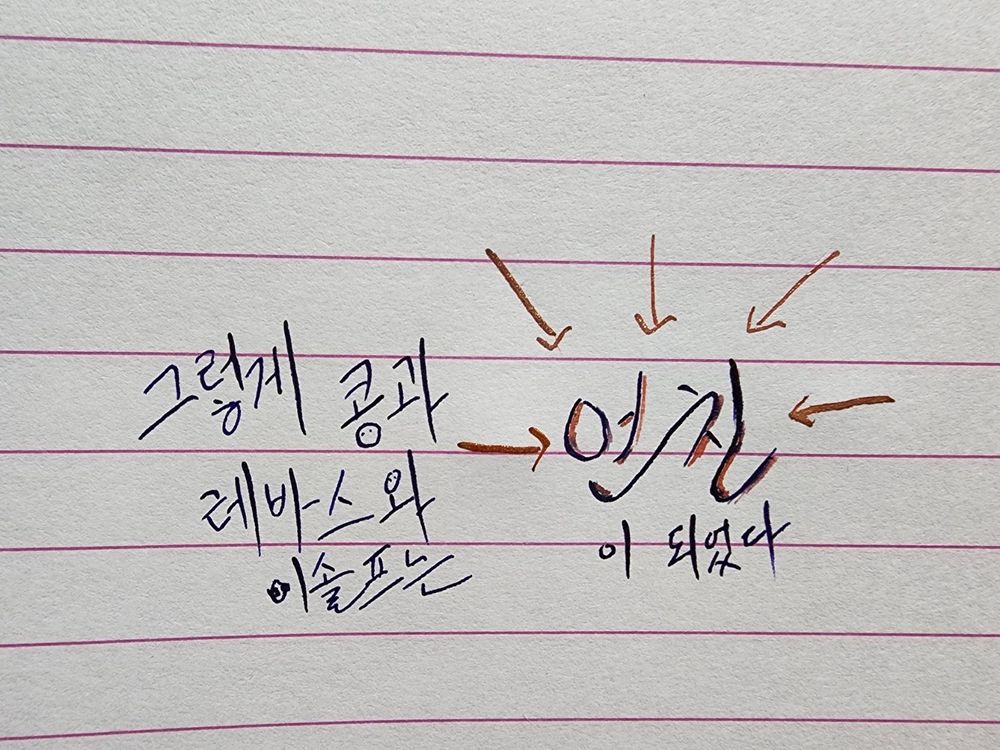 그렇게 콩과
레바스와
이솔프는
연친
이 되었다